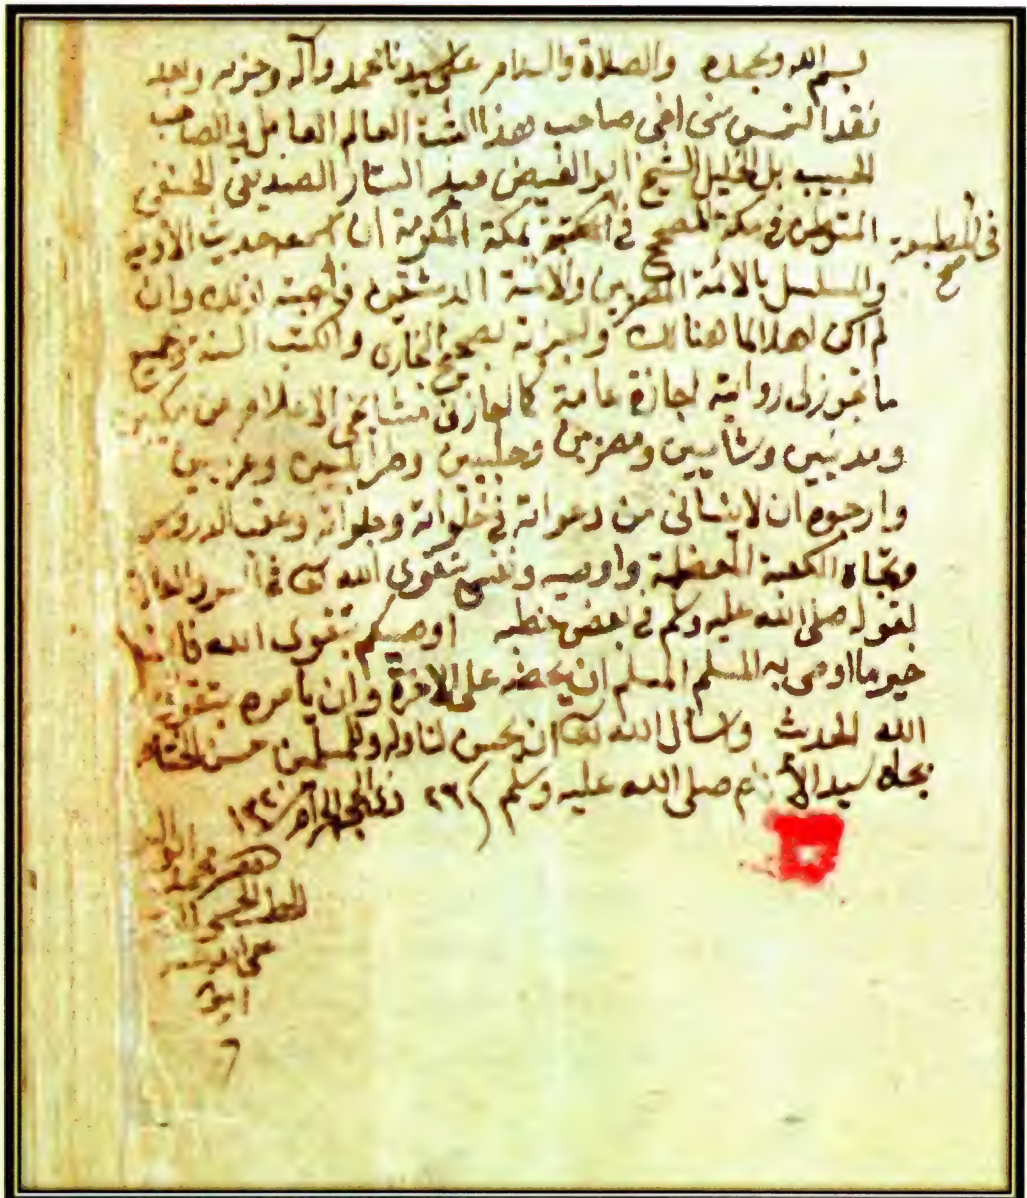 بسم الله وبحمده والصلاة والسلام على سيدنا محمد وآله وحزبه وبعد
فقد التمس مني اخي صاحب هذا الثبت العالم العامل والصاحب
الحبيب بل الخليل الشيخ ابو الفيض عبد الستار الصديقي الحنفي
المتوطن في مكة المصحح في المكتبة بمكة المكرمة ان اسمعه حديث الأولية
في المطبعة صح
والمسلسل بالائمة المصريين والائمة الدمشقيين فاجبته لذلك وان
لم اكن اهلا لما هنالك واجزته بصحيح البخاري والكتب الستة وجميع
ما تجوز لي روايته اجازة عامة كما اجازني مشايخي الاعلام من مكيين
ومدنيين وشاميين ومصريين وحلبيين وطرابلسيين وغربيين
وارجوه ان لا ينساني من دعواته في خلواته وجلواته وعقب الدروس
وتجاه الكعبة المعظمة واوصيه ونفسي بتقوى الله تعالى في السر والعلانية
لقوله صلى الله عليه وسلم في بعض خطبه اوصيكم بتقوى الله فانه
خير ما اوصى به المسلم المسلم ان يحضه على الآخرة وان يأمره بتقوى
الله الحديث واسأل الله تعالى ان يحسن لنا وله وللمسلمين حسن الختام
بجاه سيد الأنام صلى الله عليه وسلم ٢٩ ذي الحجة الحرام
ابو